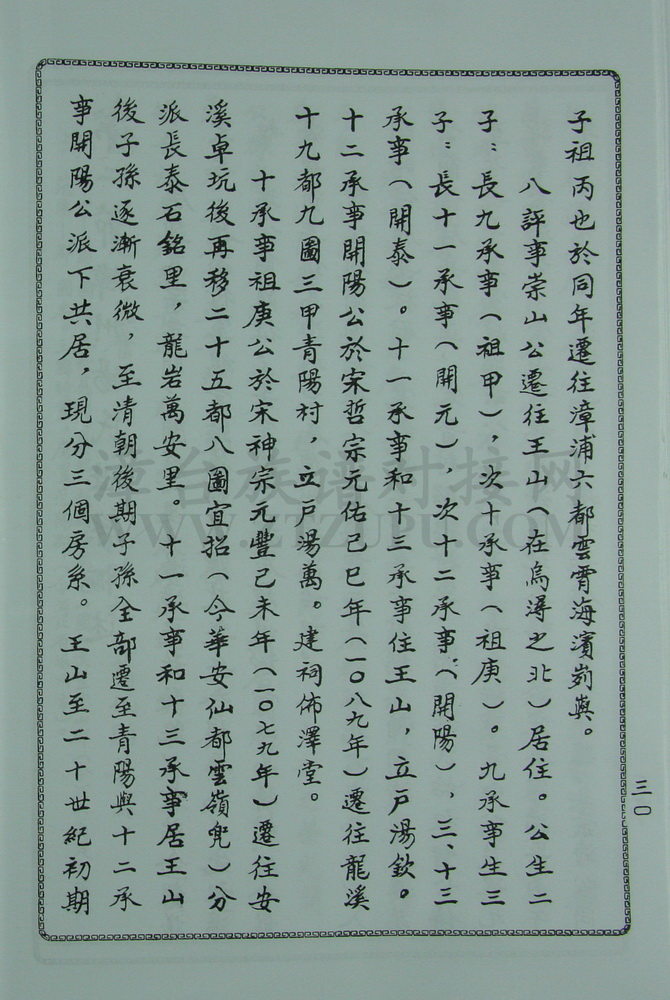 子祖丙也於同年遷往漳浦六都雲霄海濱
八評事崇山公遷往王山（在烏潯之北）居住。公生二
子：長九承事（祖甲），次十承事（祖庚）。九承事生三
子：長十一承事（開元），次十二承事（開陽），三、十三
承事（開泰）。十一承事和十三承事住王山，立戶湯欽。
十二承事開陽公於宋哲宗元佑己巳年（一〇八九年）遷往龍溪
十九都九圖三甲青陽村，立戶湯萬。建祠佈澤堂。
十承事祖庚公於宋神宗元豐己未年（一〇七九年）遷往安
溪卓坑後再移二十五都八圖宜招（今華安仙都雲嶺兜）分
派長泰石銘里，龍岩萬安里。十一承事和十三承事居王山
後子孫逐漸衰微，至清朝後期子孫全部遷至青陽與十二承
事開陽公派下共居，現分三個房系。王山至二十世紀初期
三〇
WWW.ZTZUPU.COM